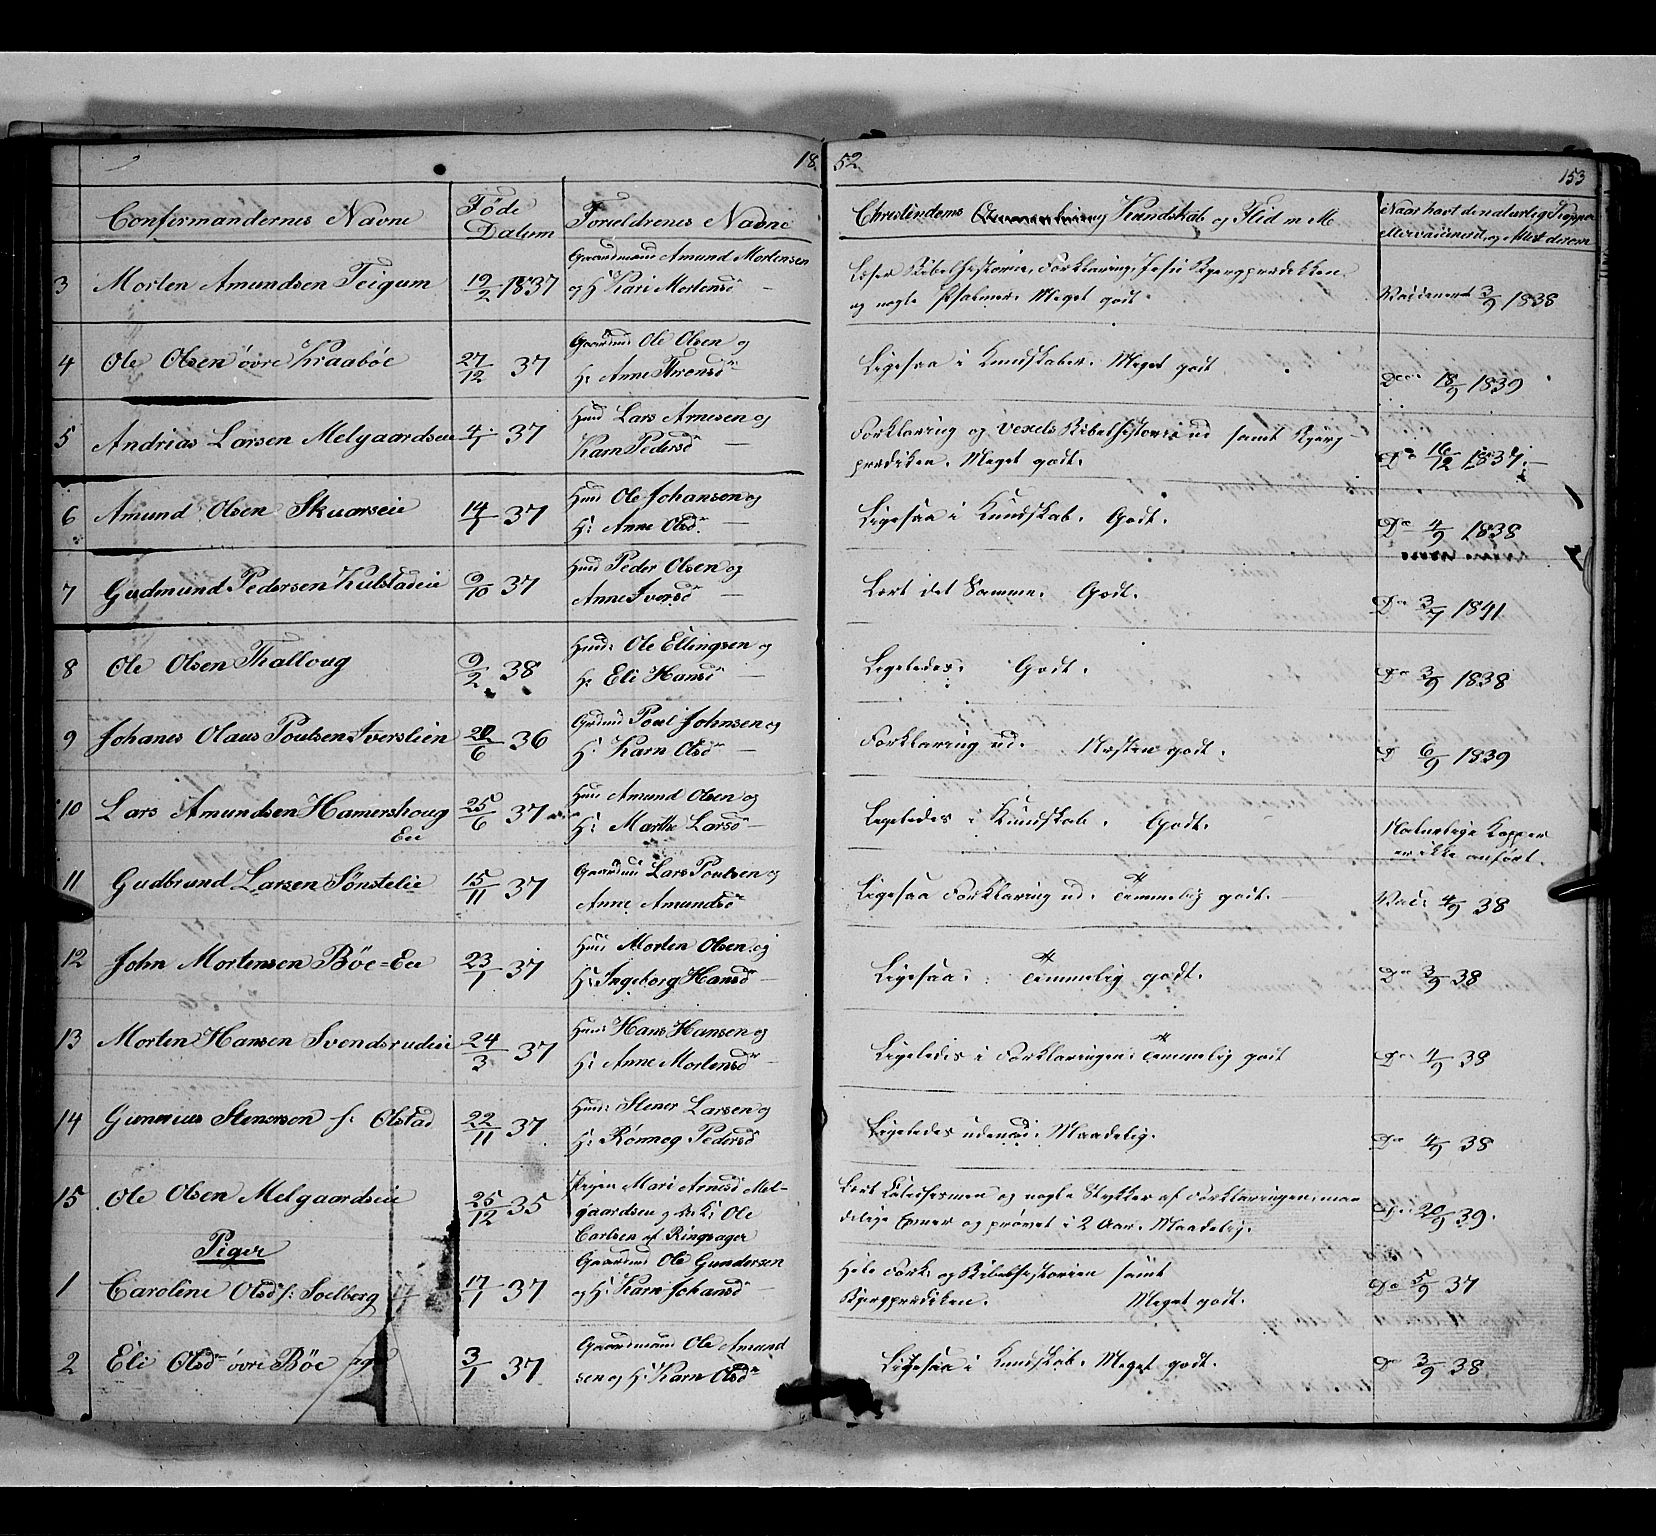 18 52
153
Confermandernes Navne
Føde Datum
Foreldrenes Navne
Christendoms Kundskab og Flid m M.
Naar havt de naturlig Kopper
eller vaccinerd, og Attest derom
3 Morten Amundsen Teigum 19/2 1837
Gaardmand Amund Mortensen
og H. Kari Mortensd. —
Læser Bibelhistorie, Forklaring, Jesu Bjergprædikken
og nogle Psalmer. Meget godt.
Vaccinered 3/9 1838
4 Ole Olsen øvre Kraabøe 27/12 37
Gaardmd Ole Olsen og
H: Anne Iversd.
Ligesaa i Kundskaber. Meget godt
Do 18/9 1839
5 Andrias Larsen Melgaardseie 4/1 37
Husd Lars Arnesen og
Karn Pedersd —
Forklaring og Vexels Bibelhistorie ud samt Bjerg-
prædiken. Meget godt.
Do 16/12 1837.
6 Amund Olsen Skuarseie 14/1 37
Husd Ole Johansen og
H: Anne Olsd. —
Ligesaa i Kundskab. Godt.
Do 4/9 1838
7 Gudmund Pedersen Kulstadeie 9/10 37
Husd Peder Olsen og
Anne Iversd —
Lært det Samme. Godt.
Do 3/7 1841
8 Ole Olsen Thalloug 9/2 38
Husd: Ole Ellingsen og
H: Eli Hansd —
Ligeledes. Godt.
Do 3/9 1838
9 Johanes Olaus Poulsen Iverslien /6 36
Grdmd Poul Johnsen og
H: Karn Olsd —
Forklaring ud. Næsten godt.
D 6/9 1839
10 Lars Amundsen Hamershoug 25/6 37
Eie
Husd Amund Olsen og
H: Marthe Larsd —
Ligeledes i Kundskab. Godt.
Naturlige Kopper
er ikke anført.
11 Gudbrand Larsen Sønstelie 15/11 37
Gaardmd Lars Poulsen og
Anne Amundsd
Ligesaa Forklaring ud. Temmelig godt.
Vac. 4/9 38
12 John Mortensen Bøe-Eie 23/1 37
Husd Morten Olsen og
H: Ingeborg Hansd —
Ligesaa. Temmelig godt.
Do 3/9 38
13 Morten Hansen Svendsrudeie 24/3 37
Husd Hans Hansen og
H: Anne Mortensd —
Ligeledes i Forklaringen. Temmelig godt
Do 4/9 38
14 Gunerius Stenersen f: Olstad 22/11 37
Husd: Stener Larsen og
H: Rønnog Pedersd
Ligeledes udenad. Maadelig.
Do 4/9 38
15 Ole Olsen Melgaardseie 25/12 35
Pigen Mari Arnesd Mel-
gaardseie og Ole
Carlsen af Ringsager
Lært Katechismen og nogle Stykker af Forklaringen, maa-
delige Evner og prøvet i 2 Aar. Maadelig.
20/9 39.
Piger
1 Caroline Olsd f: Soelberg 17/1 37
Gaardmd Ole Gundersen
og H: Karn Johansd —
Hele Fork: og Bibelhistorien samt
Bjergprædiken. Meget godt.
Do 5/9 37
2 Eli Olsd øvre Bøe 3/1 37
Gaardmand Ole Amund
sen og H: Karn Olsd
Ligesaa i Kundskab. Meget godt.
Do 3/9 38